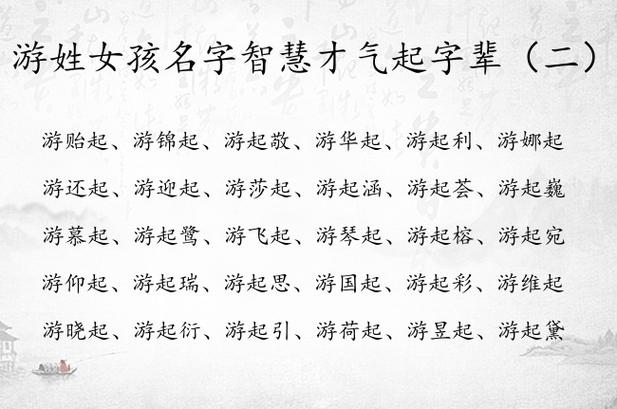 游姓女孩名字智慧才气起字辈（二）
游贻起、游锦起、游起敬、游华起、游起利、游娜起
游还起、游迎起、游莎起、游起涵、游起荟、游起巍
游慕起、游起鹭、游飞起、游琴起、游起榕、游起宛
游仰起、游起瑞、游起思、游国起、游起彩、游维起
游晓起、游起衍、游起引、游荷起、游昱起、游起黛